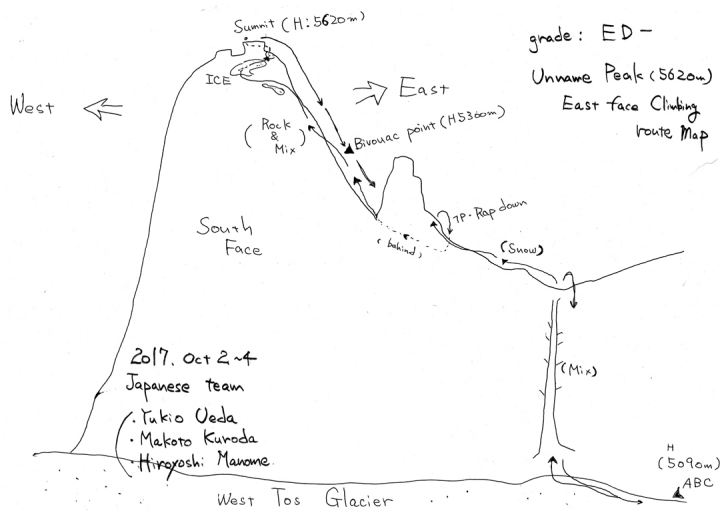 Summit (H:5620m)
grade: ED-
Unname Peak (5620m)
East face Climbing
route Map
ICE
West
East
Bivouac point (H5360m)
(Rock
&
Mix)
7P. Rap down
South
Face
(behind)
(Snow)
2017. Oct 2~4
Japanese team
(Mix)
· Yukio Ueda
· Makoto Kuroda
· Hiroyoshi Manome
H
(5090m)
ABC
West Tos Glacier